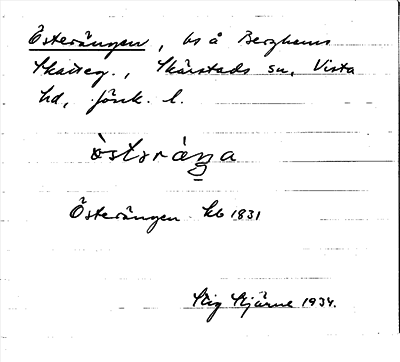 Österängen, ls å Berghems
Skatteg., Skärstads sn, Vista
hd, Jönk. l.
òstəráŋa
Österängen kb 1831
Stig Stjärne 1934.